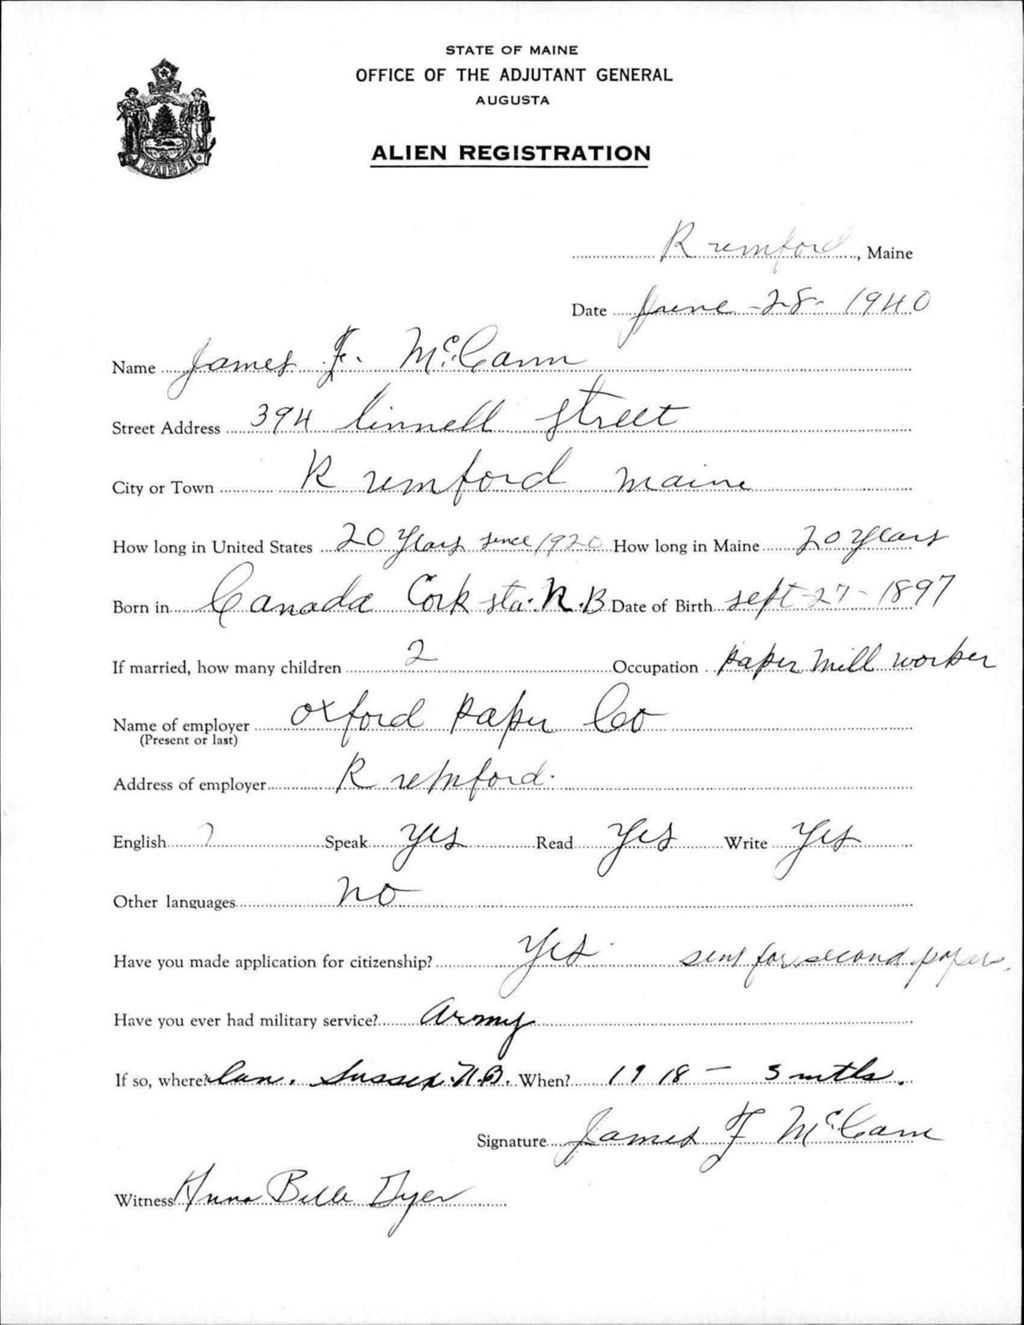 STATE OF MAINE
OFFICE OF THE ADJUTANT GENERAL
AUGUSTA
ALIEN REGISTRATION
MAINE
Rumford, Maine
Date June - 28 - 1940
Name James F. McCann
Street Address 394 Linnell Street
City or Town Rumford Maine
How long in United States 20 Years since 1920 How long in Maine 20 Years
Born in Canada Cork Sta. N.B Date of Birth Sept - 27 - 1897
If married, how many children 2 Occupation Paper Mill worker
Name of employer Oxford Paper Co
(Present or last)
Address of employer Rumford.
English Speak Yes Read Yes Write Yes
Other languages no
Have you made application for citizenship? Yes sent for second papers.
Have you ever had military service? Army
If so, where? Can. Sussex N.B. When? 1918 - 5 mths.
Signature James F McCann
Witness Anna Belle Dyer